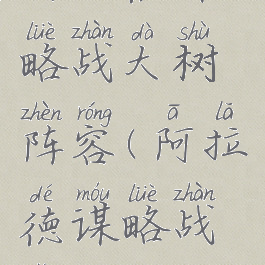 lüè zhàn dà shù
略战大树
zhèn róng ā lā
阵容(阿拉
dé móu lüè zhàn
德谋略战